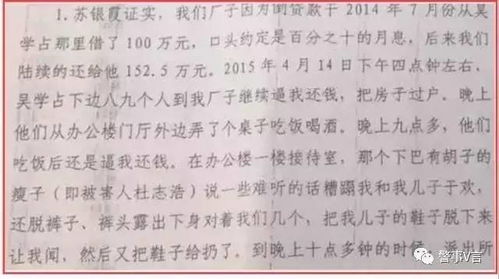 1.苏银霞证实，我们厂子因为倒贷款于 2014 年 7 月份从吴
学占那里借了 100 万元，口头约定是百分之十的月息，后来我们
陆续的还给他 152.5 万元。2015 年 4 月 14 日下午四点钟左右，
吴学占下边八九个人到我厂子继续逼我还钱，把房子过户。晚上
他们从办公楼门厅外边弄了个桌子吃饭喝酒。晚上九点多，他们
吃饭后还是逼我还钱。在办公楼一楼接待室，那个下巴有胡子的
瘦子（即被害人杜志浩）说一些难听的话糟蹋我和我儿子于欢，
还脱裤子、裤头露出下身对着我们几个，把我儿子的鞋子脱下来
让我闻，然后又把鞋子给扔了。到晚上十点多钟的时候，派出所
警事V言